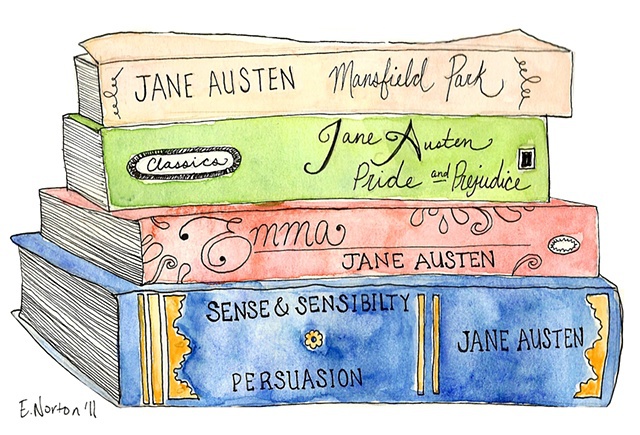 JANE AUSTEN Mansfield Park
Classics
Jane Austen
Pride and Prejudice
Emma
JANE AUSTEN
SENSE & SENSIBILTY
PERSUASION
JANE AUSTEN
E. Norton '11